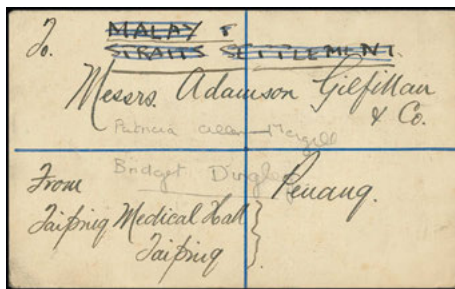 To.
MALAY &
STRAITS SETTLEMENT.
Messrs. Adamson Gilfillan
& Co.
Patricia
Bridget
Penang.
From
Taiping Medical Hall
Taiping